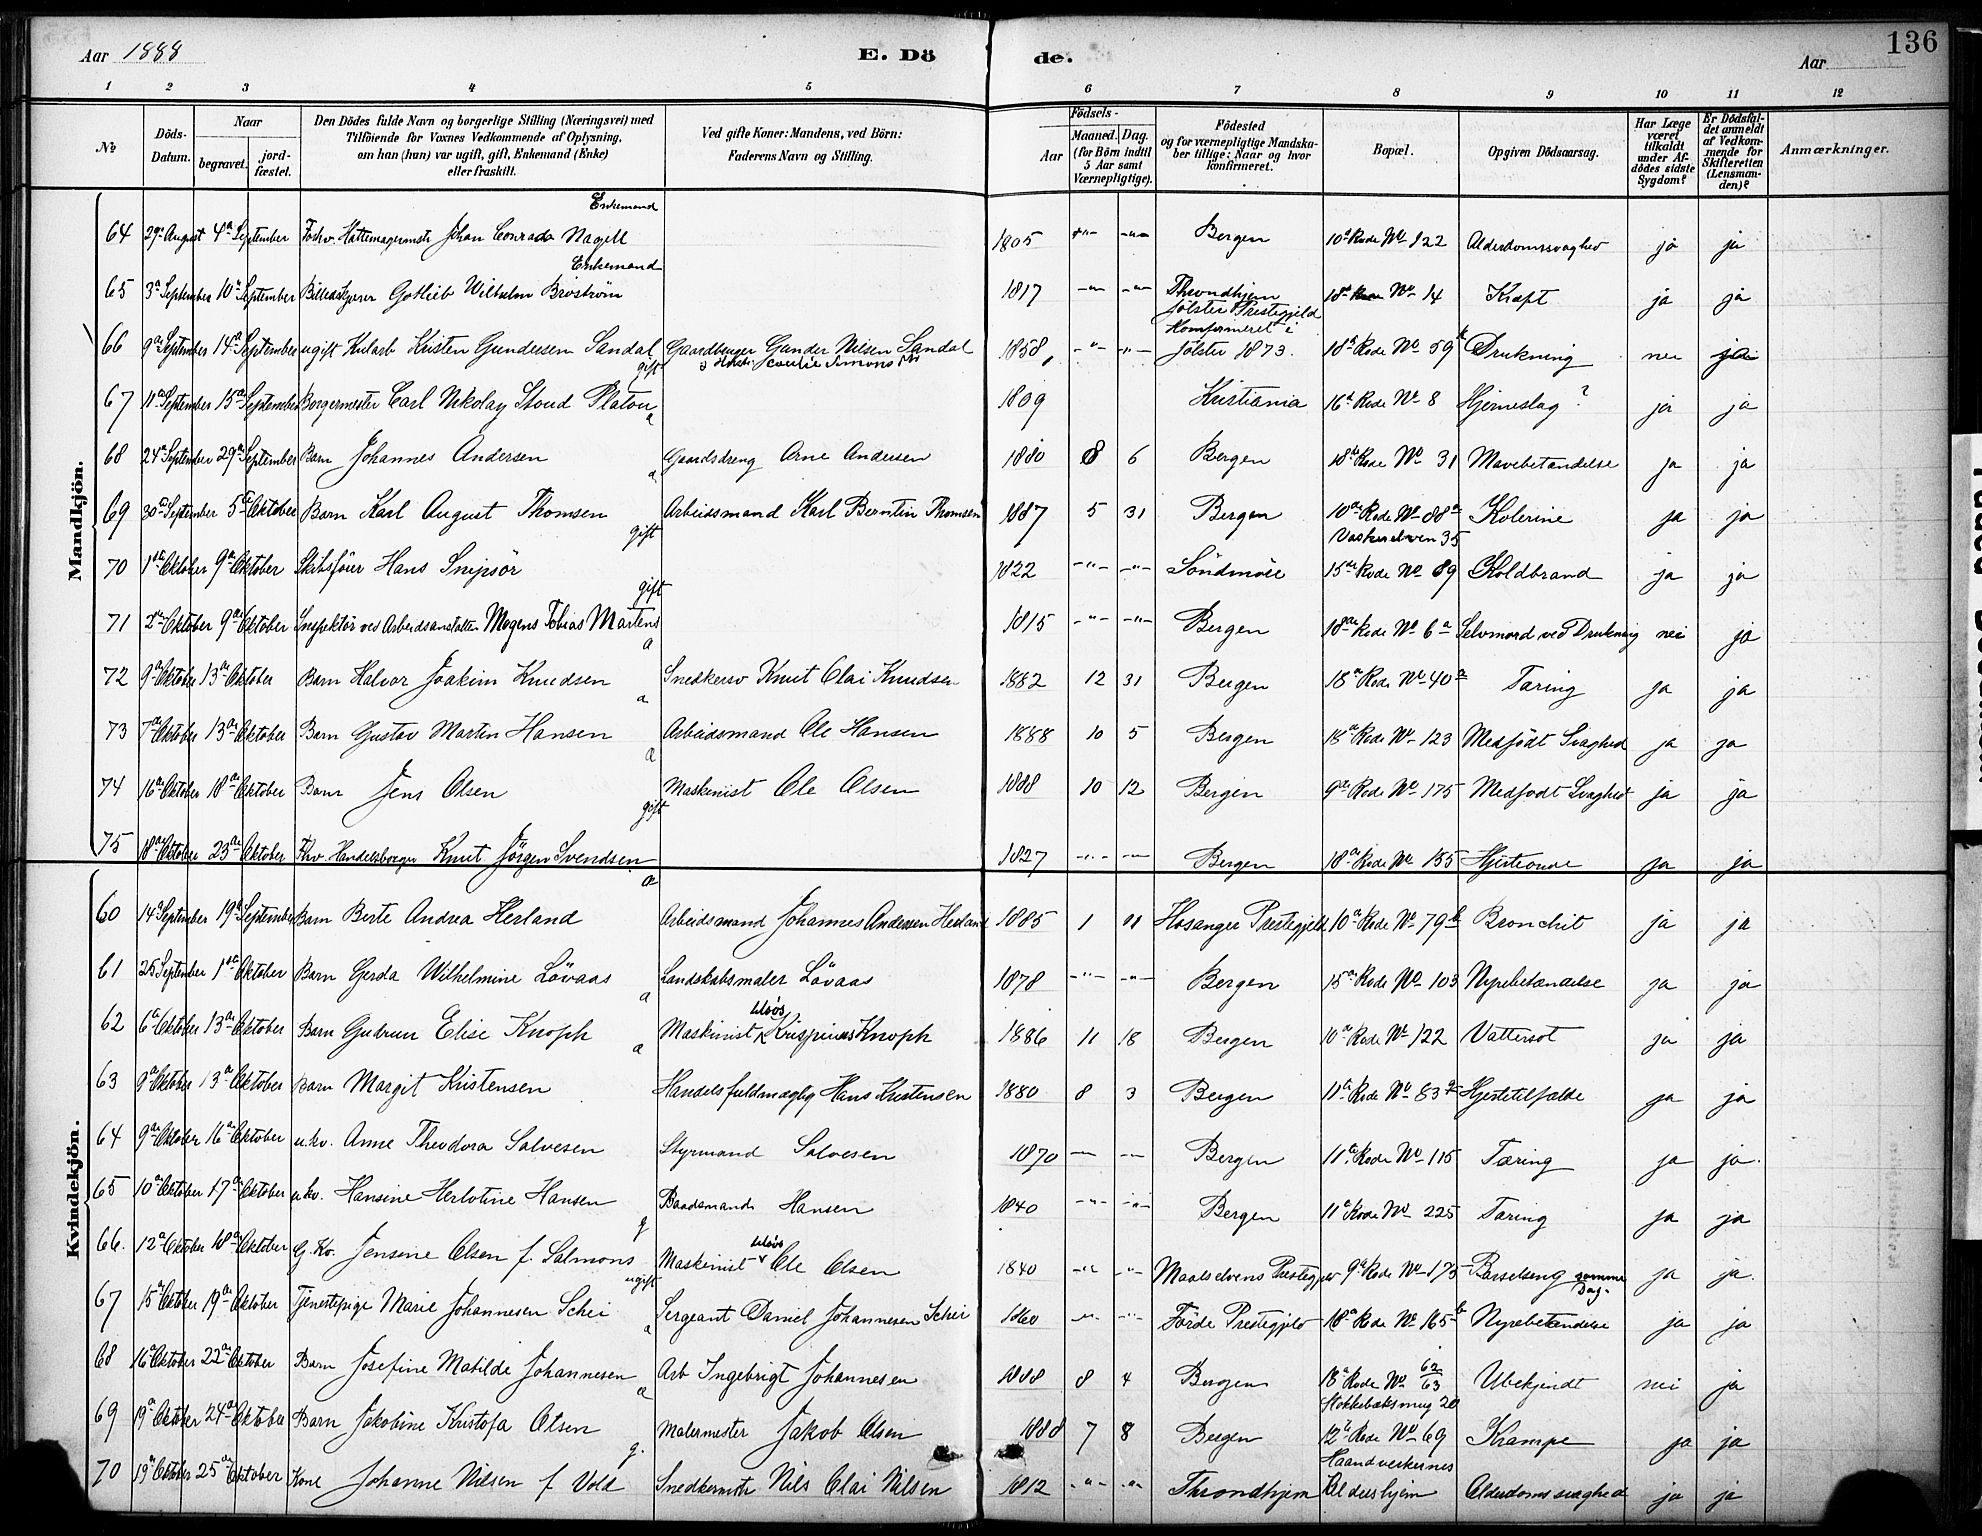 Aar 1888
E. Döde.
Aar
136
1 2 3 4 5 6 7 8 9 10 11 12
No
Döds-Datum.
Naar
begravet.
jord-fæstet.
Den Dödes fulde Navn og borgerlige Stilling (Næringsvei) med
Tilföiende for Voxnes Vedkommende af Oplysning,
om han (hun) var ugift, gift, Enkemand (Enke)
eller fraskilt.
Ved gifte Koner: Mandens, ved Börn:
Faderens Navn og Stilling.
Födsels-
Aar
Maaned. Dag.
(for Börn indtil
5 Aar samt
Værnepligtige).
Födested
og for værnepligtige Mandska-
ber tillige: Naar og hvor
konfirmeret.
Bopæl.
Opgiven Dödsaarsag.
Har Læge
været
tilkaldt
under Af-
dödes sidste
Sygdom?
Er Dödsfal-
det anmeldt
af Vedkom-
mende for
Skifteretten
(Lensman-
den)?
Anmærkninger.
Mandkjön.
Enkemand
64 29de August 4de September Forhv. Hattemagermstr Johan Conrad Nagell 1805 -"- -"- Bergen 10de Rode No 122 Alderdomssvaghed ja ja
Enkemand
65 3de September 10de September Billedskjærer Gotlieb Wilhelm Broström 1817 -"- -"- Throndhjem 18de Rode No 14 Kræft ja ja
Jølster Prestegjeld
Konfirmeret i
66 9de September 14de September ugift Kularb Kristen Gundersen Sandal Gaardbruger Gunder Nilsen Sandal 1858, -"- -"- Jølster 1873. 18de Rode No 59b Drukning nei ja
gift
67 11de September 15de September Borgermester Carl Nikolay Stoud Platou 1809 Kristiania 16de Rode No 8 Hjerneslag? ja ja
a
68 24de September 29de September Barn Johannes Andersen Gaardsdreng Arne Andersen 1880 8 6 Bergen 18de Rode No 31 Mavebetændelse ja ja
a
69 30de September 5te Oktober Barn Karl August Thomsen Arbeidsmand Karl Berntin Thomsen 1887 5 31 Bergen 10de Rode No 88a Kolerine ja ja
35
gift
70 1ste Oktober 9de Oktober Skibsfører Hans Snipsør 1822 -"- -"- Söndmöre 15de Rode No 89 Koldbrand ja ja
gift
71 2de Oktober 9de Oktober Inspektör ved Arbeidsanstalten Mogens Tobias Martens 1815 -"- -"- Bergen 18de Rode No 6a Selvmord ved Drukning nei ja
a
72 9de Oktober 13de Oktober Barn Halvor Joakim Knudsen Snedkersv Knut Olai Knudsen 1882 12 31 Bergen 18de Rode No 40a Tæring ja ja
a
73 7de Oktober 13de Oktober Barn Gustav Martin Hansen Arbeidsmand Ole Hansen 1888 10 5 Bergen 18de Rode No 123 Medfödt Svaghed ja ja
a
74 16de Oktober 18de Oktober Barn Jens Olsen Maskinist Ole Olsen 1888 10 12 Bergen 9de Rode No 175 Medfödt Svaghed ja ja
gift
75 18de Oktober 23de Oktober Fhv. Handelsborger Knut Jörgen Svendsen 1827 -"- -"- Bergen 18de Rode No 155 Hjerteonde ja ja
Kvindekjön.
a
60 14de September 19de September Barn Berte Andrea Herland Arbeidsmand Johannes Andersen Herland 1885 1 11 Hosanger Prestegjeld 10de Rode No 79b Bronchit ja ja
61 25 September 1ste Oktober Barn Gerda Wilhelmine Lövaas Landskabsmaler Lövaas 1878 -"- -"- Bergen 15de Rode No 103 Nyrebetændelse ja ja
a
62 6te Oktober 13de Oktober Barn Gudrun Elise Knoph Maskinist Krispinus Knoph 1886 11 18 Bergen 10de Rode No 122 Vattersot ja ja
a
63 9de Oktober 13de Oktober Barn Margit Kristensen Handelsfuldmægtig Hans Kristensen 1880 8 3 Bergen 11te Rode No 83a Hjertetilfælde ja ja
64 9de Oktober 16de Oktober u.kv. Anne Theodora Salvesen Styrmand Salvesen 1870 -"- -"- Bergen 11te Rode No 115 Tæring ja ja.
65 10de Oktober 17de Oktober u.kv. Hansine Herlotine Hansen Baadsmand Hansen 1840 -"- -"- Bergen 11te Rode No 225 Tæring ja ja
g
66. 12te Oktober 18de Oktober G. Kv. Jensine Olsen f. Salmons Maskinist Ole Olsen 1840 -"- -"- Maalselvens Prestegj 9de Rode No 175 Barselseng samme Dag. ja ja.
ugift
67 15de Oktober 19de Oktober Tjenestepige Marie Johannesen Schei Sergeant Daniel Johannesen Schei 1860 -"- -"- Förde Prestegjeld 18de Rode No 165b Nyrebetændelse ja ja
a
68 16de Oktober 22de Oktober Barn Josefine Matilde Johannesen Arb Ingebrigt Johannesen 1888 8 4 Bergen 18de Rode No 62/63 Ubekjendt nei ja
Stokkebæksmug 20
a
69 19de Oktober 24de Oktober Barn Jakobine Kristofa Olsen Malermester Jakob Olsen 1888 7 8 Bergen 12te Rode No 69 Krampe ja ja
Haandverkernes
g.
70 19de Oktober 25de Oktober Kone Johanne Nilsen f Vold Snedkermstr Nils Olai Nilsen 1812 -"- -"- Throndhjem Aldershjem Alderdomssvaghed ja ja